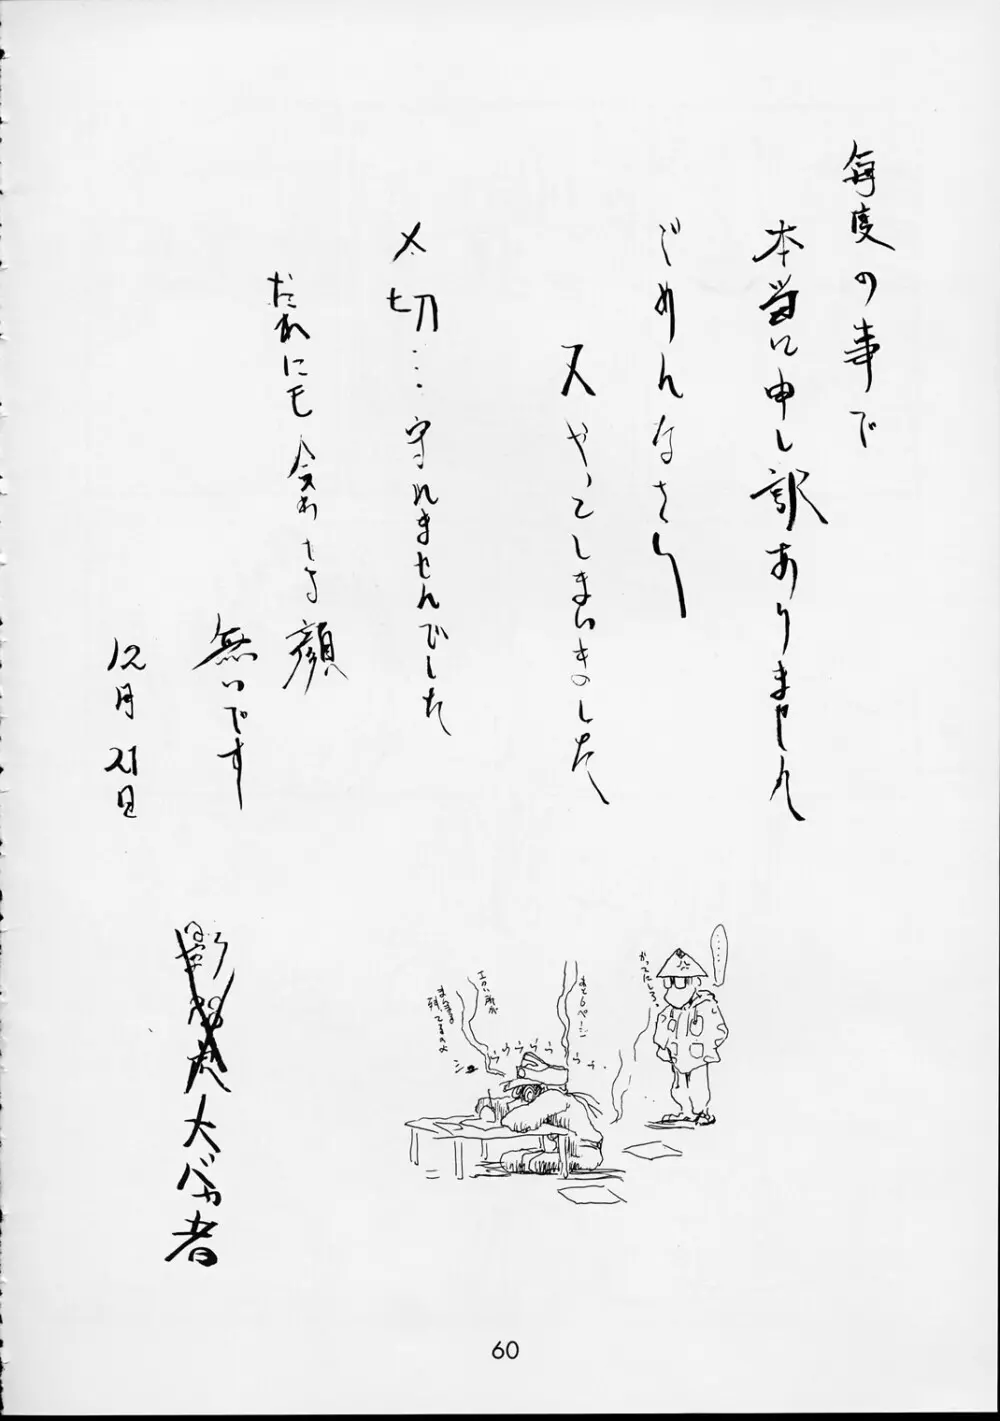 毎度の事で
本当に申し訳ありません
ごめんなさい
又やってしまいましした
〆切…守れませんでした
だれにも会わす顔
無いです
12月21日
影 虎大バカ者
……
かってにしろ。
あと6ページ
ううううう う う.
エロい所が
まんま
残ってるのよ
60